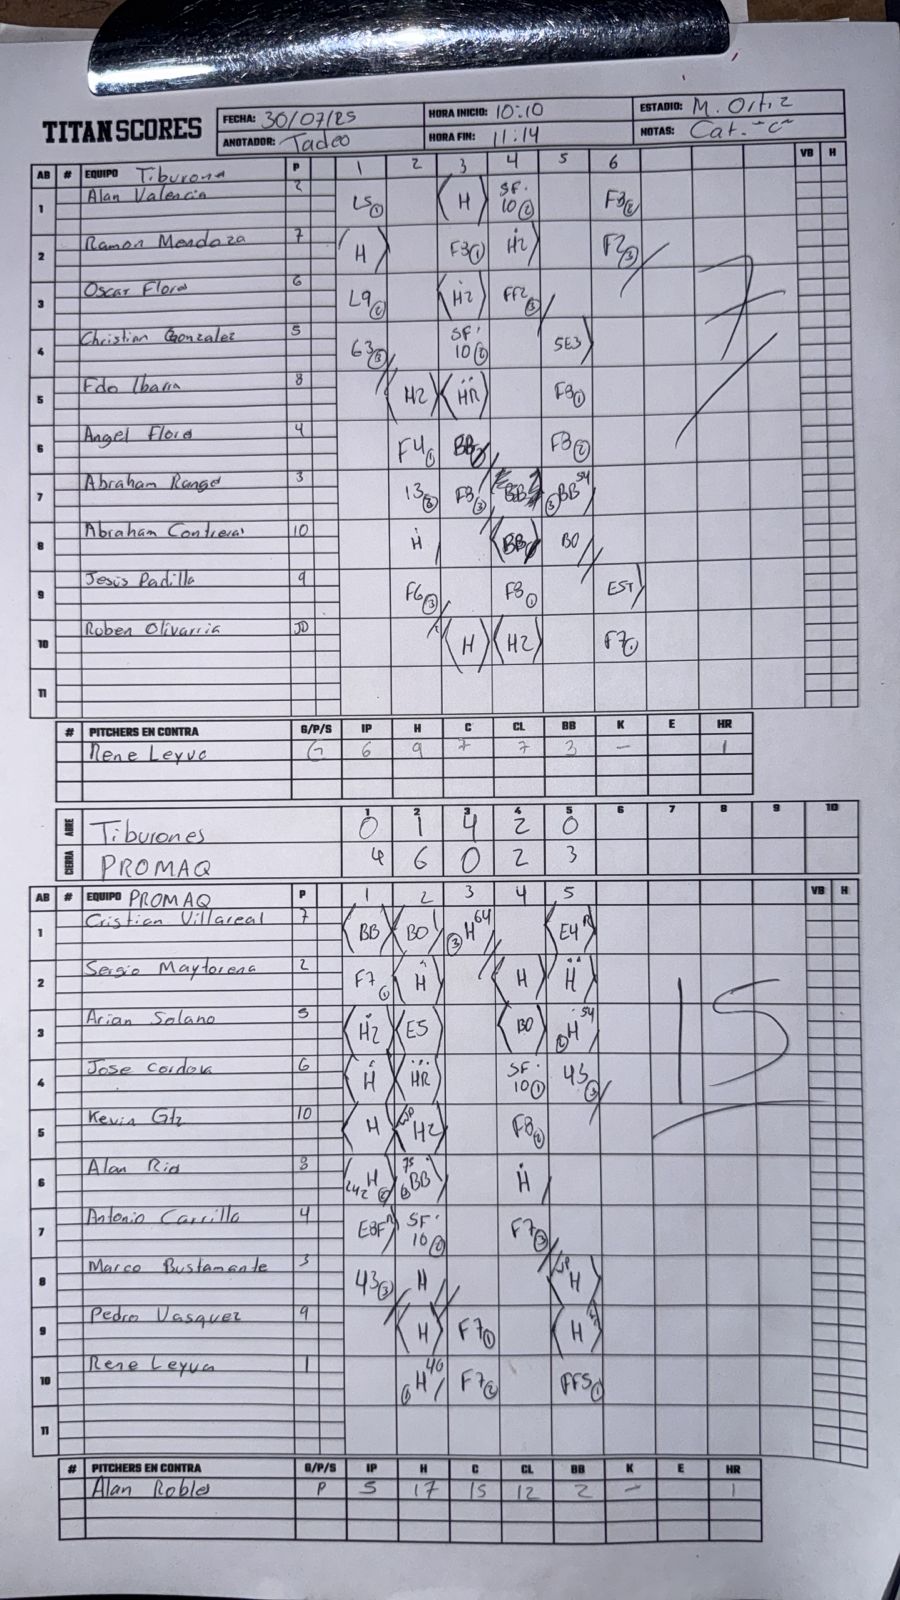 TITAN SCORES
FECHA: 30/07/25 HORA INICIO: 10:10 ESTADIO: M. Ortiz
ANOTADOR: Tadeo HORA FIN: 11:14 NOTAS: Cat. "C"
AB # EQUIPO Tiburones P 1 2 3 4 5 6 VB H
1 Alan Valencia 2 L5① H SF· 10② F3②
2 Ramon Mendoza 7 H F3① H2 F2③
3 Oscar Flores 6 L9② H2 FF2③
4 Christian Gonzalez 5 63③ SF· 10② SE3
5 Edo Ibarra 8 H2 HR F8①
6 Angel Flores 4 F4① BB F8②
7 Abraham Rangel 3 13② F8③ BB ③BB 54
8 Abraham Contreras 10 H BB BO
9 Jesus Padilla 9 F6③ F8① EST
10 Roben Olivarria JD H H2 F7①
11
7
# PITCHERS EN CONTRA G/P/S IP H C CL BB K E HR
Rene Leyva G 6 9 7 7 3 – 1
1 2 3 4 5 6 7 8 9 10
ABRE Tiburones 0 1 4 2 0
CIERRA PROMAQ 4 6 0 2 3
AB # EQUIPO PROMAQ P 1 2 3 4 5 VB H
1 Cristian Villareal 7 BB BO ③H 64 E4 R
2 Sergio Maytorena 2 F7① H H H
3 Arian Solano 5 H2 E5 BO ②H 54
4 Jose Cordova 6 H HR SF· 10① 43③
5 Kevin Gtz 10 H WP H2 F8②
6 Alan Rios 8 H 75 BB H
7 Antonio Carrillo 4 E8F SF· 10② F7③
8 Marco Bustamante 3 43③ H WP H
9 Pedro Vasquez 9 H F7① H
10 Rene Leyva 1 ①H 46 F7② FF5①
11
15
# PITCHERS EN CONTRA G/P/S IP H C CL BB K E HR
Alan Robles P 5 17 15 12 2 – 1